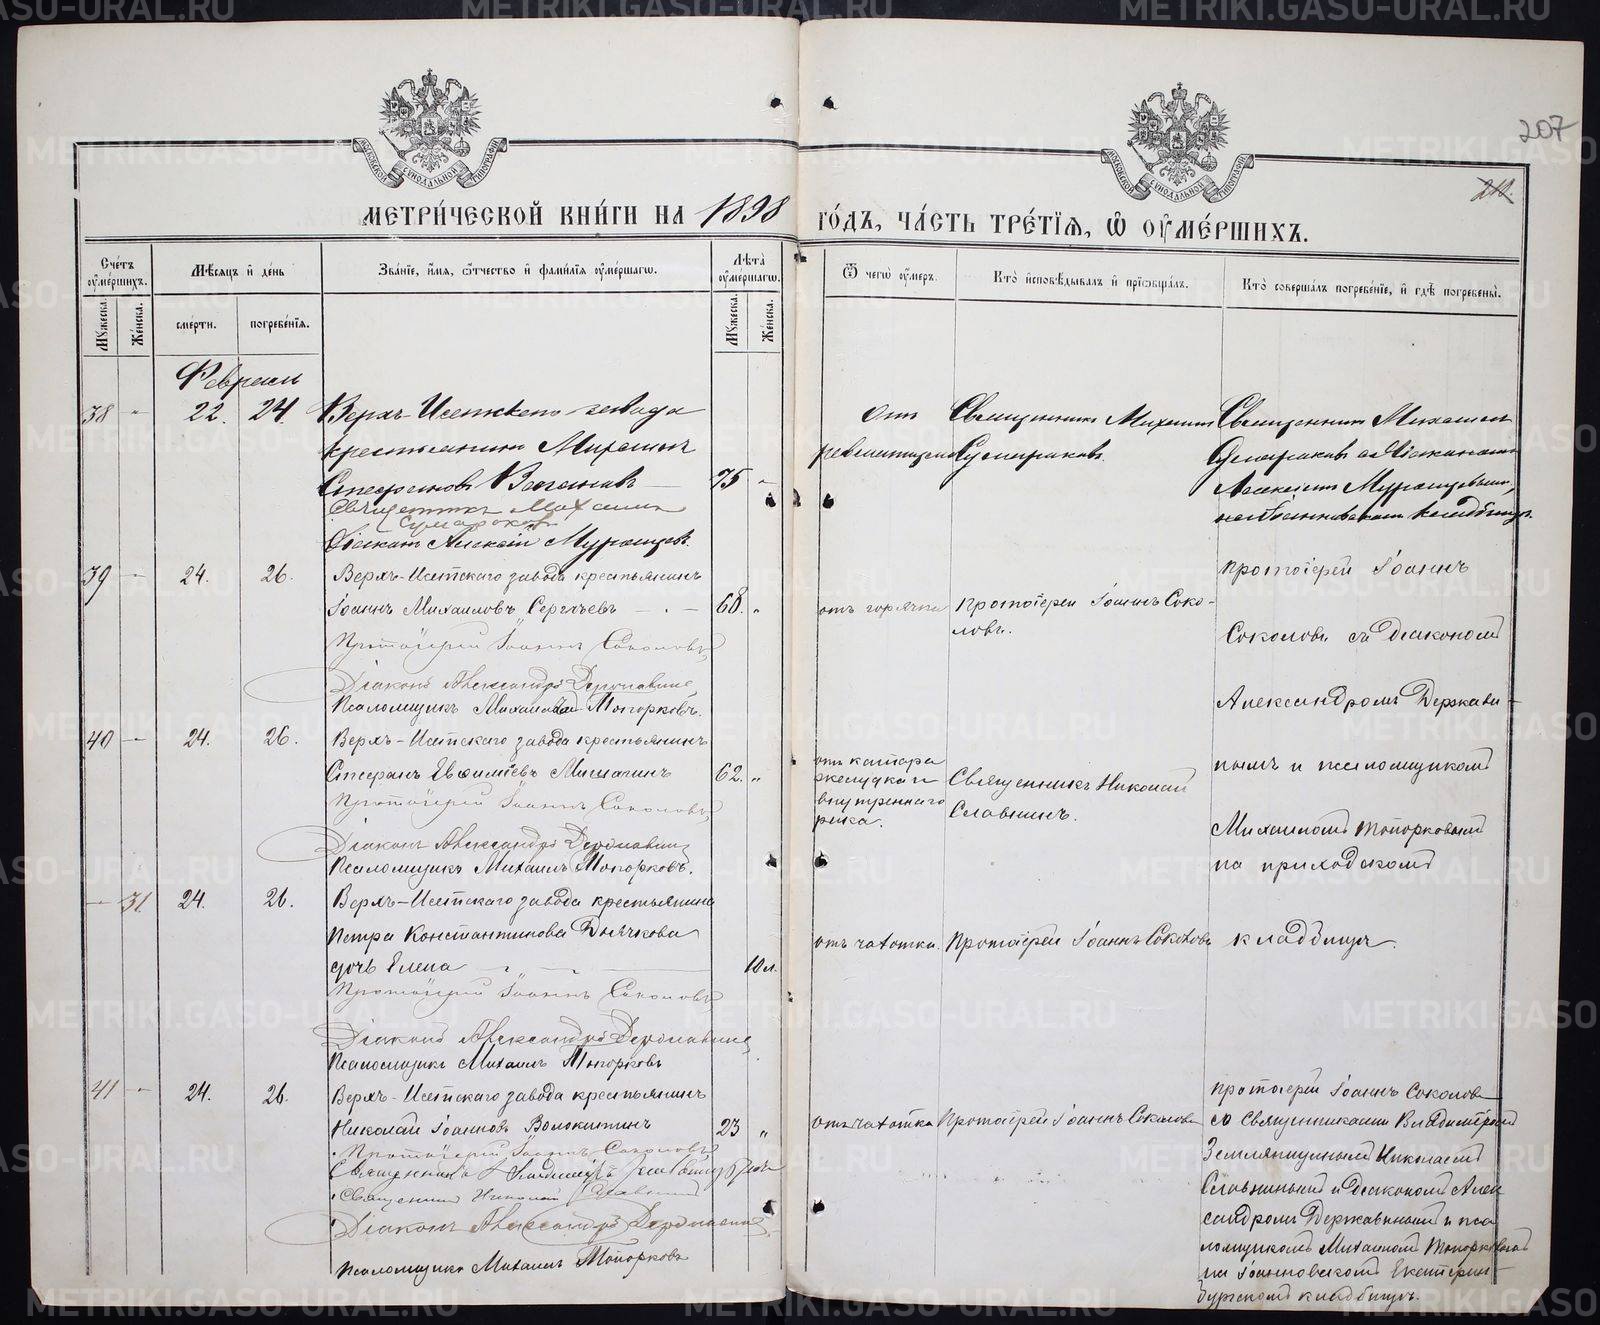 207
212.
МЕТРИ́ЧЕСКОЙ КНИ́ГИ НА 1898 ГО́ДЪ, ЧА́СТЬ ТРЕ́ТІЯ, Ѡ ОУМЕ́РШИХЪ.
Сче́тъ оуме́ршихъ.
Мѣсяцъ и де́нь
Зва́ніе, и́мя, ѻ́тчество и фами́лія оуме́ршагѡ.
Лѣта̀ оуме́ршагѡ.
Ѿ чегѡ̀ оу́меръ.
Кто̀ исповѣ́дывалъ и пріѡбща́лъ.
Кто̀ соверша́лъ погребе́ніе, и гдѣ̀ погребены̀.
Му́жеска.
Же́нска.
сме́рти.
погребе́нія.
Му́жеска.
Же́нска.
Февраль
38 - 22. 24. Верхъ-Исетскаго завода
крестьянинъ Михаилъ
Стефановъ Ваганов — 75 -
Священникъ Михаилъ
Сумароковъ
Діаконъ Алексій Мурашевъ.
От
ревматизма
Священникъ Михаилъ
Сумароковъ.
Священникъ Михаилъ
Сумароковъ съ Діакономъ
Алексіемъ
кладбищѣ.
39 - 24. 26. Верхъ-Исетскаго завода крестьянинъ
Іоаннъ Михаиловъ Сергѣевъ - . - 68. „
Протоіерей Іоаннъ Соколовъ
Діаконъ Александръ Державинъ
Псаломщикъ Михаилъ Топорковъ.
отъ горячки
Протоіерей Іоаннъ Соко-
ловъ.
Протоіерей Іоаннъ
Соколовъ съ діакономъ
Александромъ Держави-
нымъ и псаломщикомъ
Михаиломъ Топорковымъ
на приходскомъ
кладбищѣ.
40 - 24. 26. Верхъ-Исетскаго завода крестьянинъ
Стефанъ Евфиміевъ Мишагинъ 62. „
Протоіерей Іоаннъ Соколовъ
Діаконъ Александръ Державинъ
Псаломщикъ Михаилъ Топорковъ.
отъ катара
желудка и
внутренняго
рака.
Священникъ Николай
Славнинъ.
— 31. 24. 26. Верхъ-Исетскаго завода крестьянина
Петра Константинова Дьячкова
дочь Елена 10 л.
Протоіерей Іоаннъ Соколовъ
Діаконъ Александръ Державинъ
Псаломщикъ Михаилъ Топорковъ
отъ чахотки.
Протоіерей Іоаннъ Соколовъ
41 - 24. 26. Верхъ-Исетскаго завода крестьянинъ
Николай Іоанновъ Волокитинъ 23 „
Протоіерей Іоаннъ Соколовъ
Священникъ Владиміръ Земляницынъ
Священникъ Николай Славнинъ
Діаконъ Александръ Державинъ
Псаломщикъ Михаилъ Топорковъ
отъ чахотки
Протоіерей Іоаннъ Соколовъ
Протоіерей Іоаннъ Соколовъ
со Священниками Владиміромъ
Земляницынымъ Николаемъ
Славнинымъ и діакономъ Алек
сандромъ Державинымъ и пса
ломщикомъ Михаиломъ Топорковымъ
на Іоанновскомъ Екатерин-
бургскомъ кладбищѣ.
METRIKI.GASO-URAL.RU